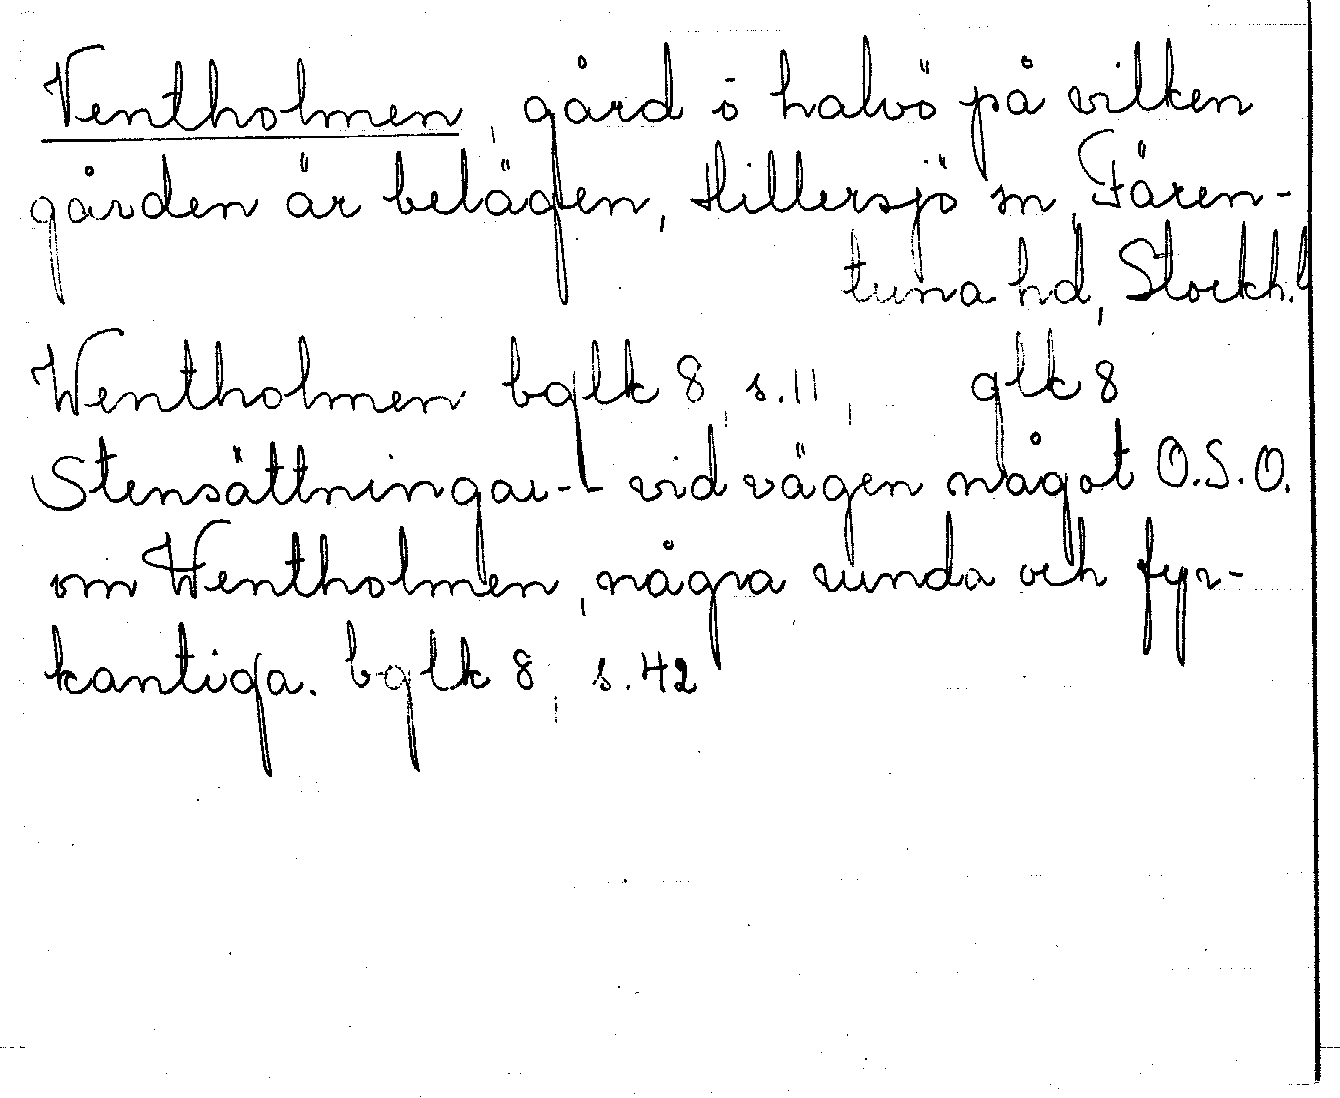 Ventholmen, gård ö halvö på vilken
gården är belägen, Hillersjö sn, Fären-
tuna hd, Stockh.
Wentholmen bglk 8, s. 11, glk 8
Stensättningar -- vid vägen något O.S.O.
om Wentholmen, några runda och fyr-
kantiga. bglk 8, s. 42